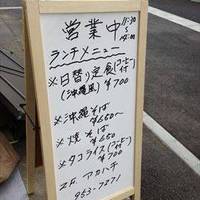 営業中 11:30
〜
14:00
ランチメニュー
※日替り定食(コーヒー付)
(沖縄風) ¥700
※沖縄そば
¥450〜
※焼そば
¥650
※タコライス(コーヒー付)
¥700
2F. アカハチ
953-7271